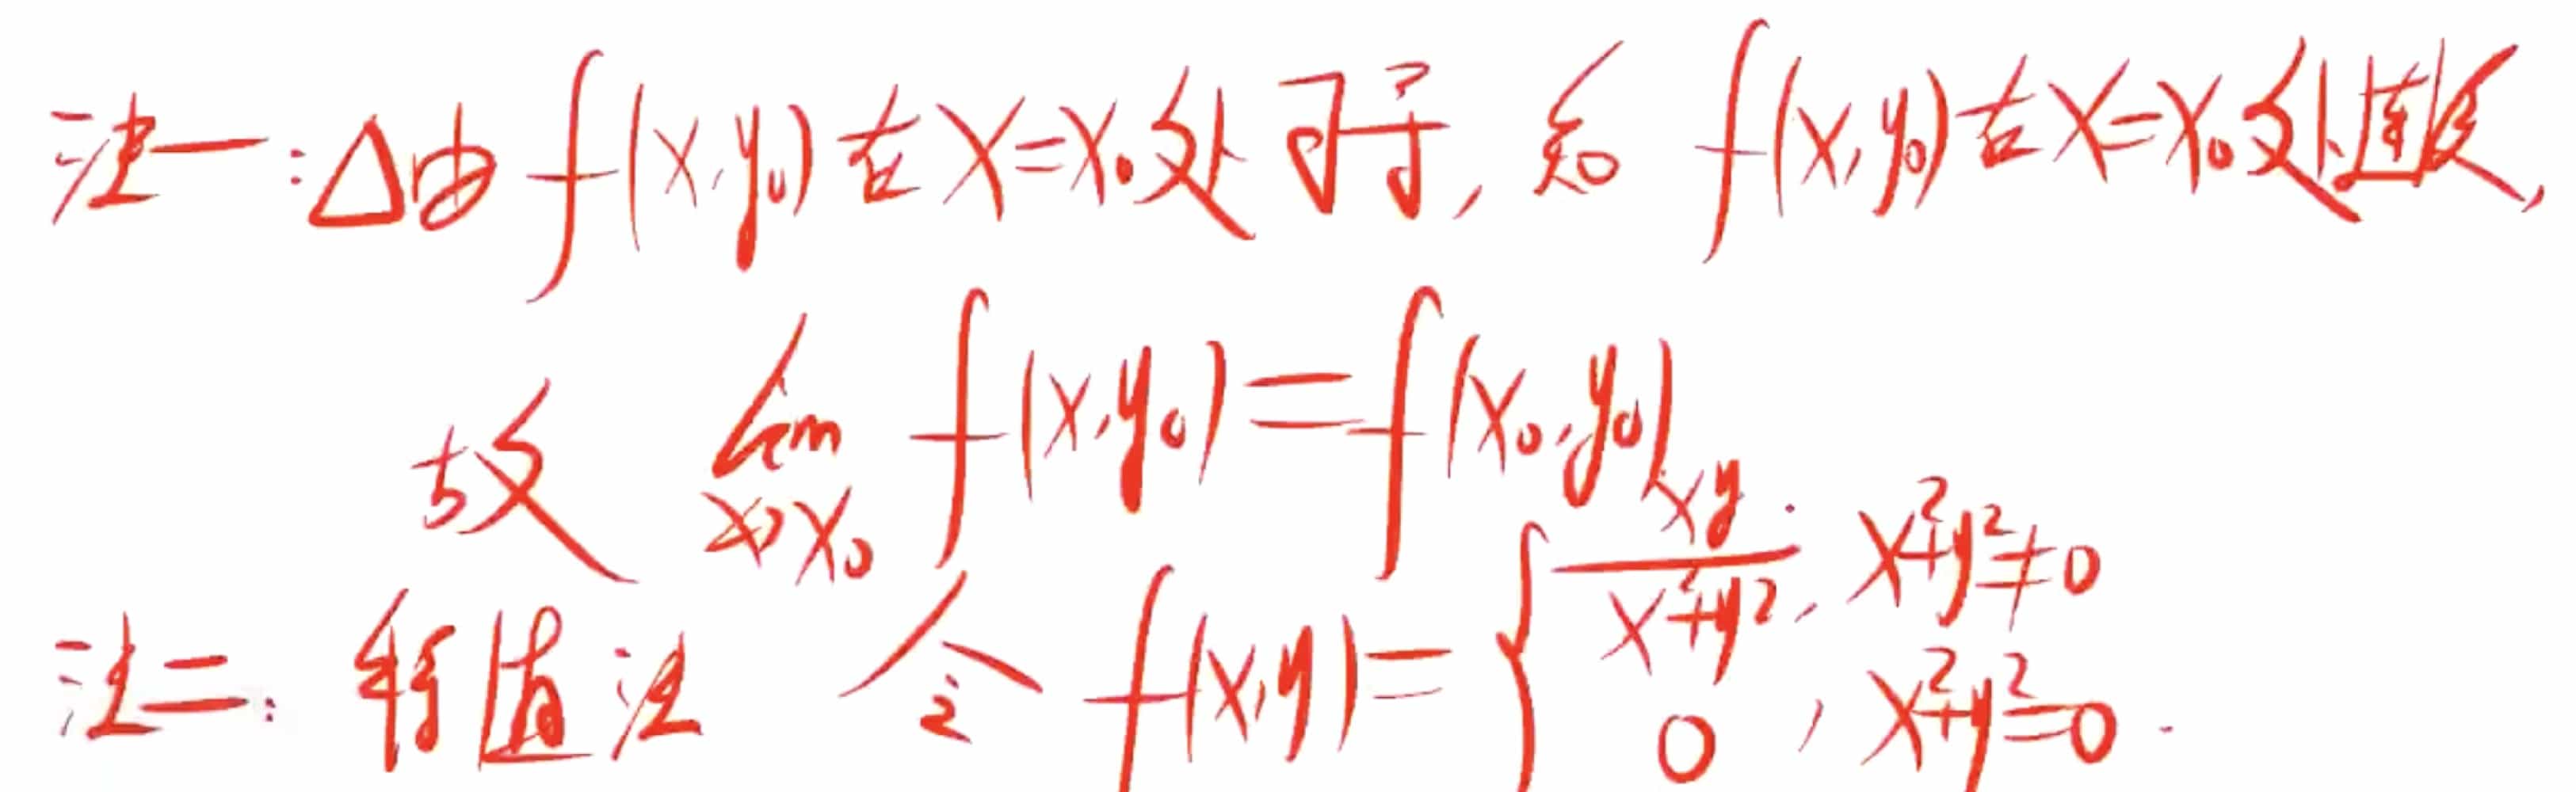 法一:△由f(x,y₀)在x=x₀处可导,知f(x,y₀)在x=x₀处连续,
故 lim_{x→x₀} f(x,y₀)=f(x₀,y₀)
法二:特值法 令 f(x,y)={ xy/(x²+y²), x²+y²≠0
0, x²+y²=0.